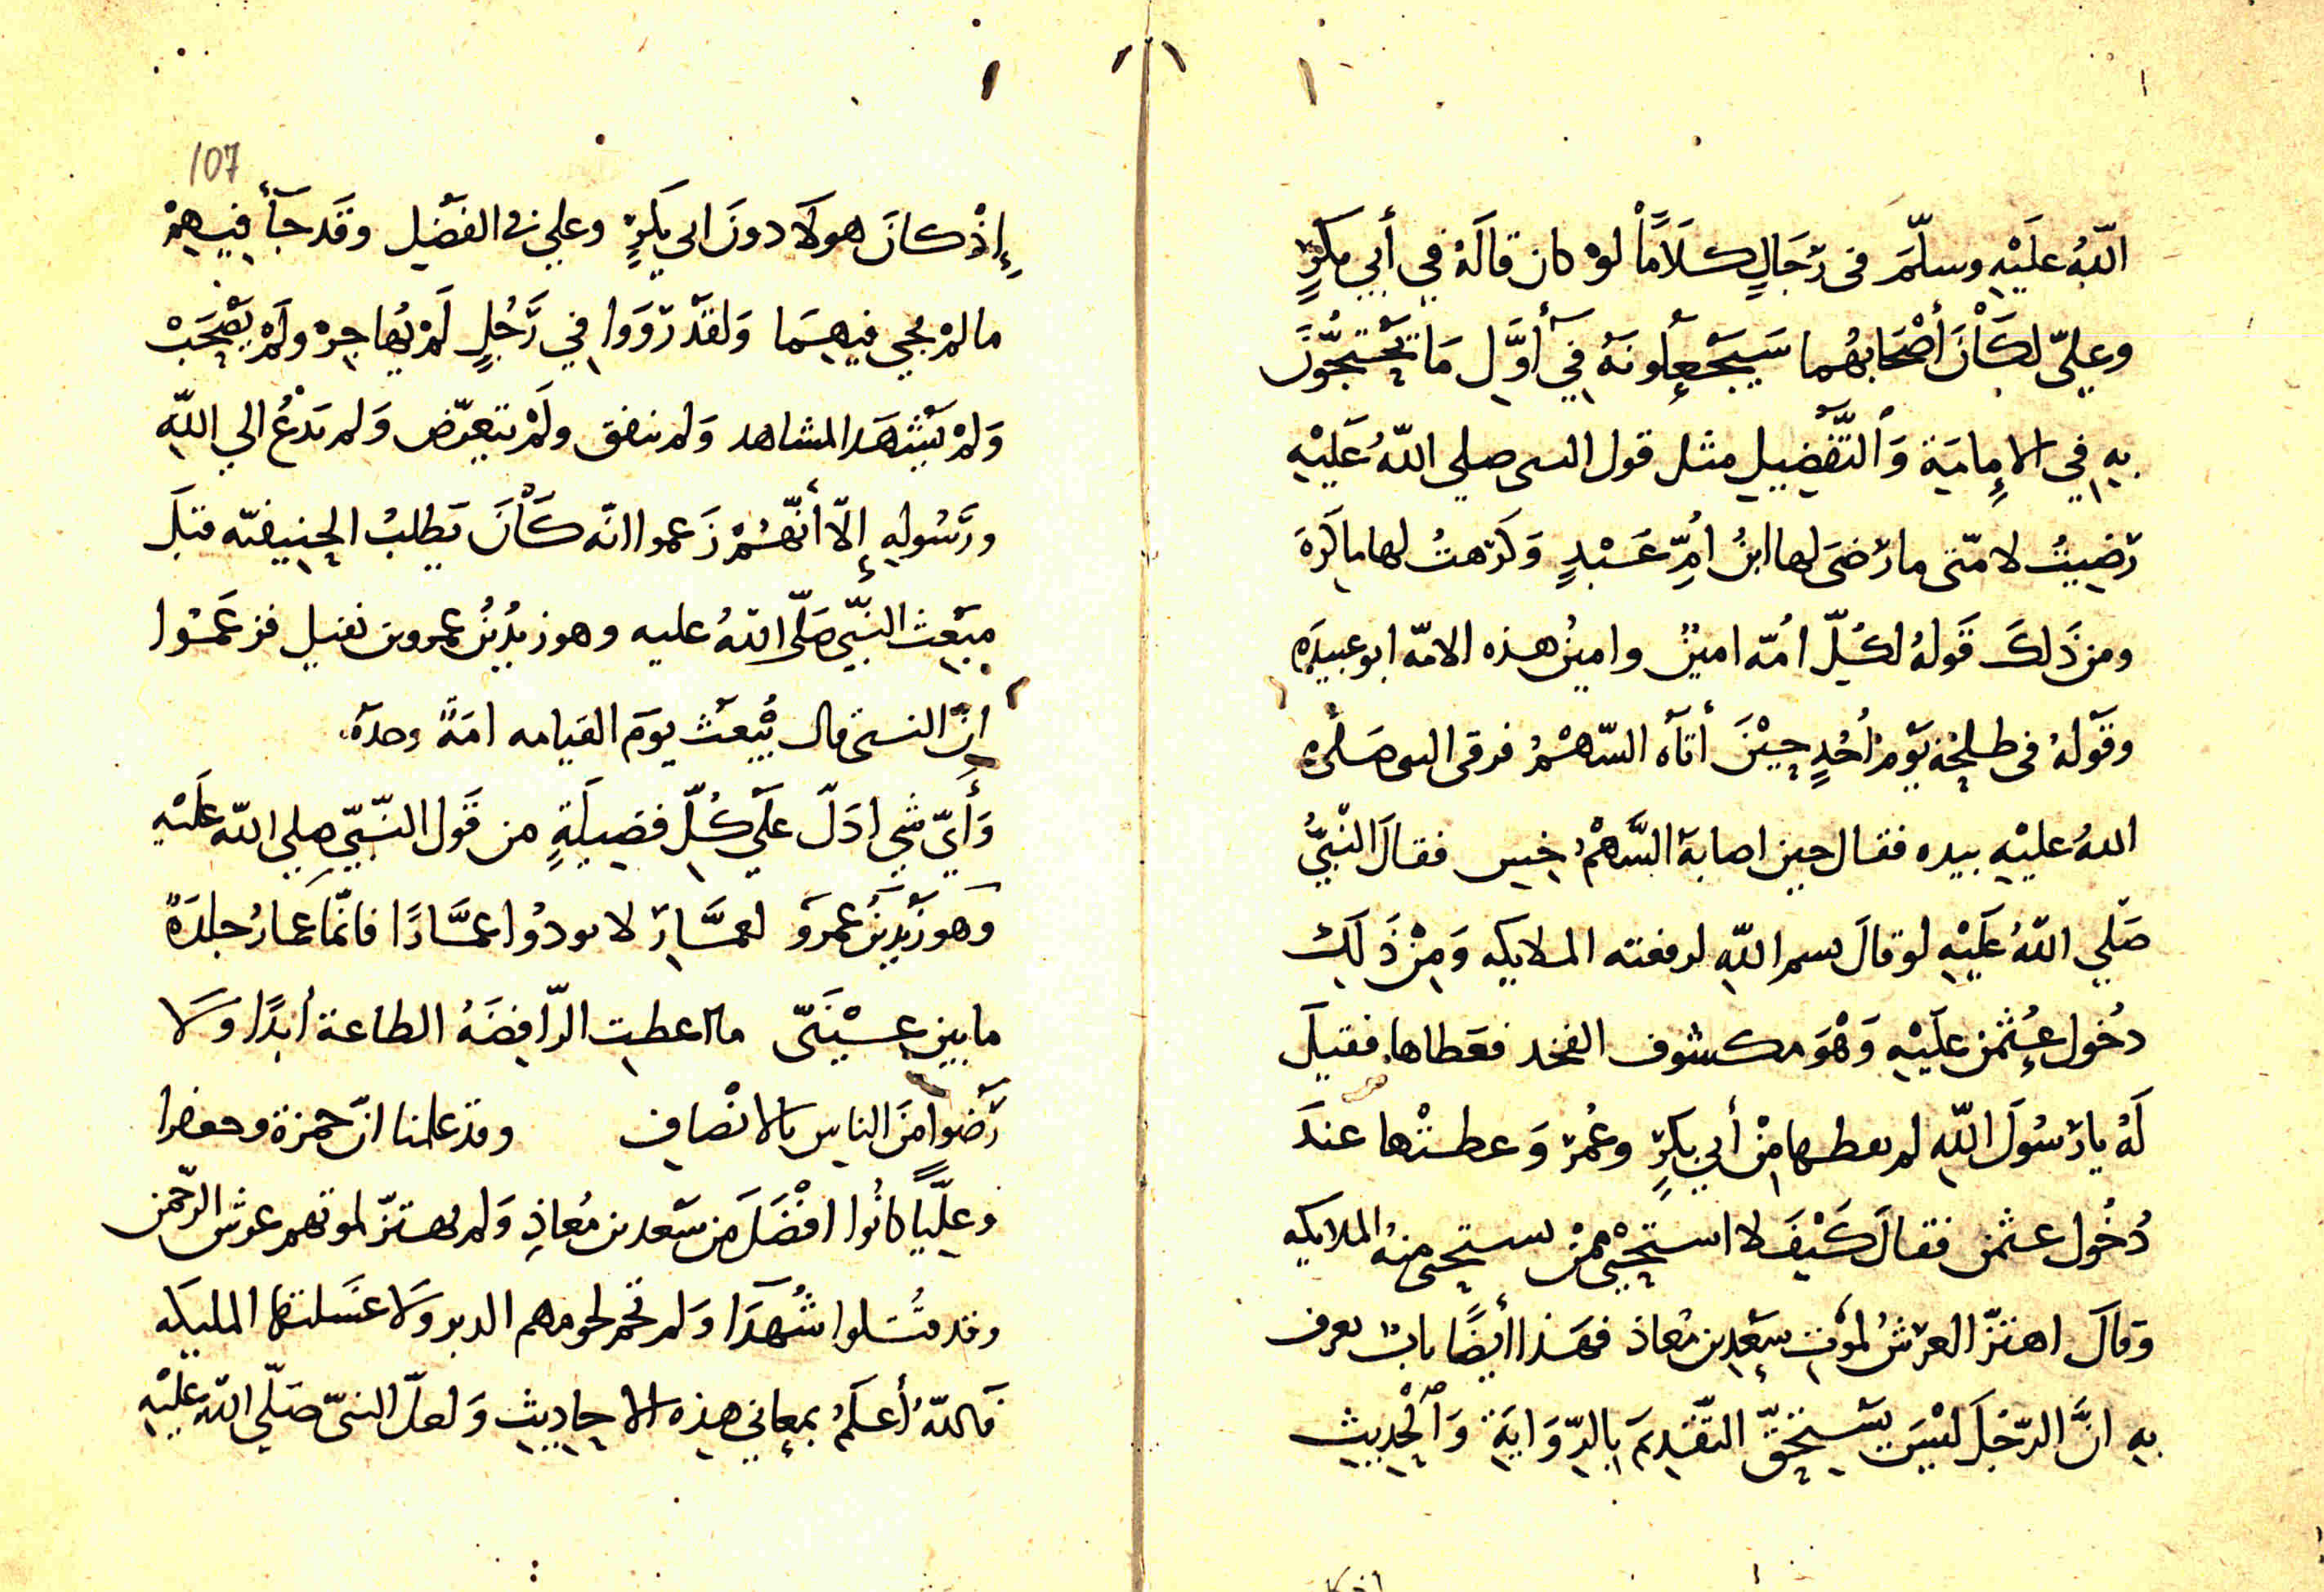 اللّهُ عَلَيْهِ وسلّمَ في رّجَالٍ كَلَامًا لوْ كان قالَهُ في أبي بكرٍ
وعليّ لكَانَ أصْحَابهُما سَيَجْعلُونَهُ في أوّلِ مَا يحْتجُّونَ
بهِ في الإمامَية وَالتَّفْضِيلِ مثل قول النبي صلي اللّهُ عَلَيْهِ
رَضِيتُ لامّتي ما رَضيَ لها ابنُ اُمِّ عَبْدٍ وَكَرَهتُ لها ما كَرَهَ
ومن ذَلكَ قَولهُ لكلّ اُمّه امينٌ وامينُ هذه الامّه ابو عبيدَه
وقَولهُ في طلحَةَ يَوْمَ اُحُدٍ حِيْنَ أتاه السّهْمُ فوقى النبي صَلى
اللهُ عليْهِ بيده فقال حين اصابهُ السَّهْمُ حَسِ فقالَ النّبيُّ
صَلّي اللّهُ عَلَيْهِ لو قالَ بسم اللّهِ لرفعته الملايكه وَمِنْ ذَلِكَ
دخُول عُثْمَن عليْهِ وَهْوَ مكشوف الفخد فعَطاها فقيلَ
لَهُ يا رَسُولَ اللّهِ لم تعطها مِنْ أبي بكرٍ وعُمَرَ وَعطيتْها عندَ
دُخُول عثمن فقالَ كَيْفَ لا استَحْيِي ممّن يستحي منهُ الملايكه
وَقالَ اهتزّ العرْشُ لموْتِ سَعْدِ بن مُعاذ فهَذا أيضًا بابٌ يعرف
به انَّ الرّجُلَ ليْسَ يَسْتحقّ التقْدِيمَ بالرِّوَايَةِ وَالْحَدِيثِ
107
إذْ كانَ هولَا دونَ ابي بكرٍ وعلي في الفَضْلِ وقَد جَآ فيهِمْ
ما لمْ يجي فيهِمَا وَلقدْ رَوَوا في رَجُلٍ لَمْ يُهاجِرْ ولَمْ يَصْحَبْ
وَلمْ يَشْهَد المشاهد وَلم ينفق ولَمْ يتعرّض وَلم يَدْعُ الي اللّهِ
ورَسُولهِ إلّا أنّهُمْ زَعموا انّه كَانَ يَطلبُ الحنيفيّه قبَل
مبْعَث النبّيّ صَلّى اللهُ عليه وهو زيدُ بْنُ عمرو بن نفيل فزعَمُوا
انّ النبي قال يُبْعَث يوَم القيامه امَةً وحدَهُ
وَأيّ شي ادَلّ علَي كُلّ فضيلَةٍ من قَول النّبيّ صلي اللّه عَلَيْهِ
وَهو زَيدِ بنُ عَمرَو لعمّارٍ لا تودوُا عمّارًا فانّما عمارُ جلدَةُ
ما بين عَيْنَيّ ما اعطيت الرّافِضَهُ الطاعة أبدًا وَلَا
رَضوا منَ الناسِ بالانْصافِ وقد علمنا انّ حمزة وجعفرا
وعليًّا كانُوا افْضَلَ مِن سَعد بن مُعاذِ وَلم يهتزّ لموتهم عرش الرّحمن
وقد قتُلوا شُهَدَا وَلم تحم لحومهم الدبر وَلَا غَسَلتهَا المليكَه
فاللّهُ أعلَمُ بمعاني هذِهِ الاحادِيثِ وَلعلّ النبيّ صَلّي اللّهُ عليْهِ